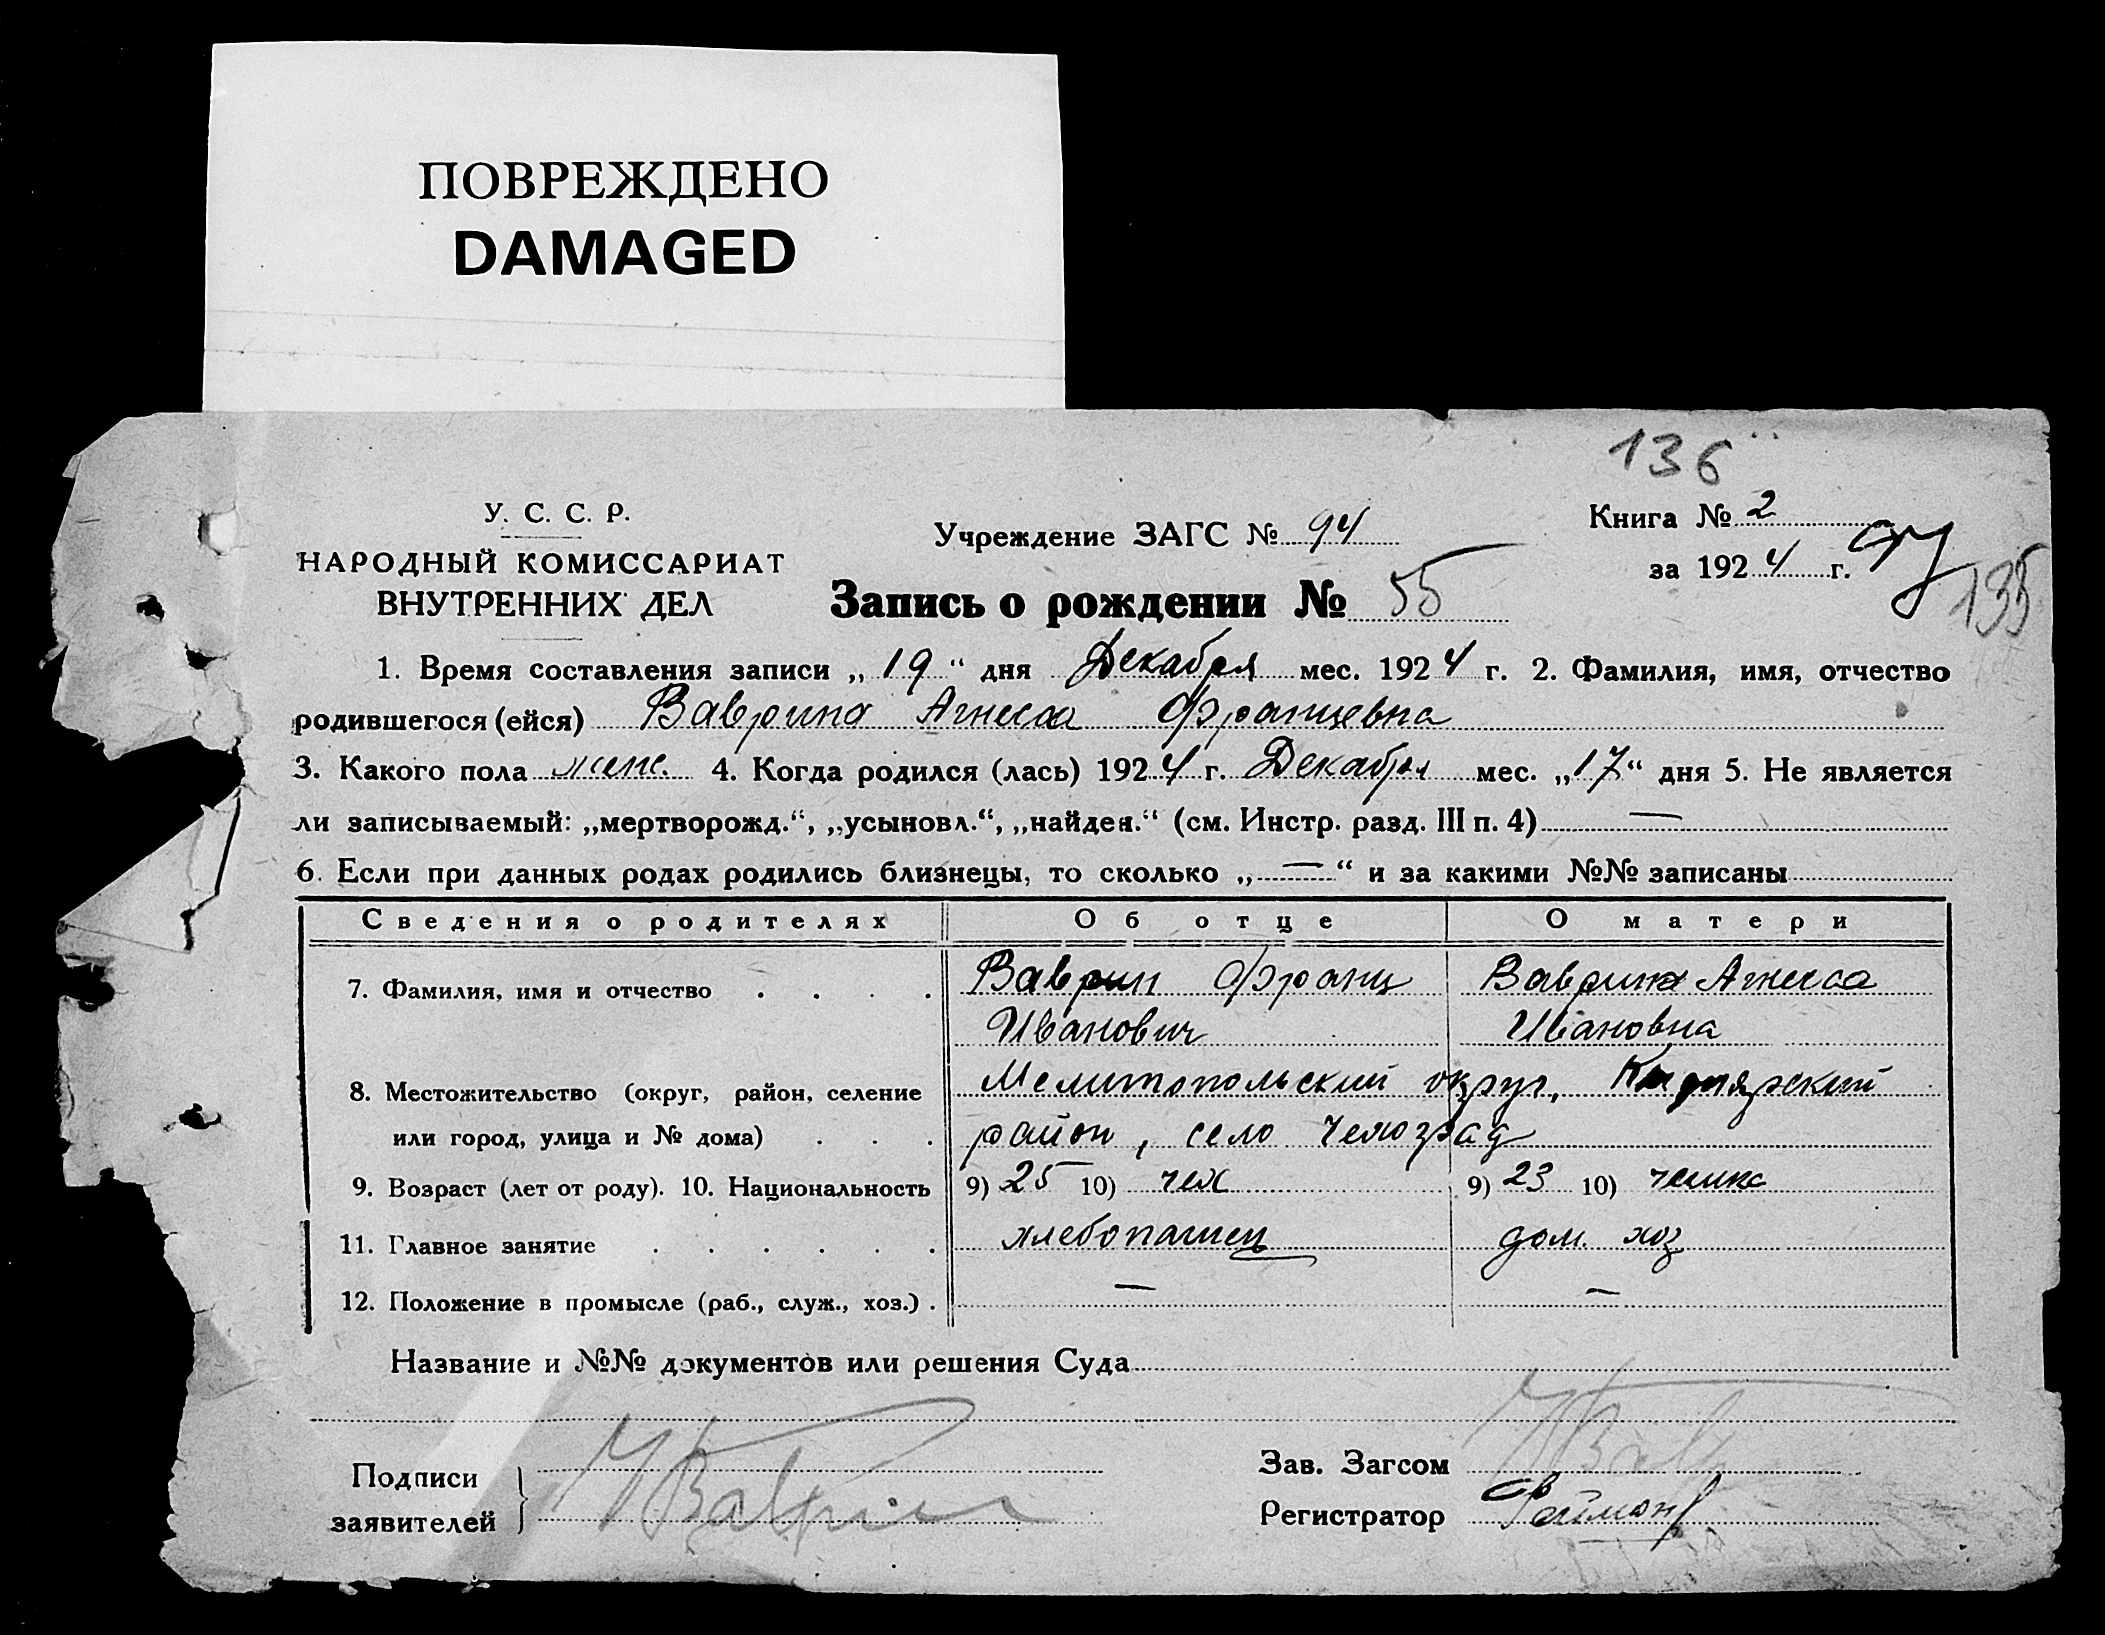 ПОВРЕЖДЕНО
DAMAGED
136
У. С. С. Р.
НАРОДНЫЙ КОМИССАРИАТ
ВНУТРЕННИХ ДЕЛ
Учреждение ЗАГС № 94
Книга № 2
за 1924 г.
135
Запись о рождении № 55
1. Время составления записи „19“ дня Декабря мес. 1924 г. 2. Фамилия, имя, отчество
родившегося (ейся) Ваврина Агнесса Францевна
3. Какого пола жен. 4. Когда родился (лась) 1924 г. Декабря мес. „17“ дня 5. Не является
ли записываемый: „мертворожд.“, „усыновл.“, „найден.“ (см. Инстр. разд. III п. 4) —
6. Если при данных родах родились близнецы, то сколько „—“ и за какими №№ записаны
Сведения о родителях Об отце О матери
7. Фамилия, имя и отчество . . . . Ваврин Франц Ваврина Агнесса
Иванович Ивановна
8. Местожительство (округ, район, селение Мелитопольский округ,
или город, улица и № дома) . . . район, село Чехоград
9. Возраст (лет от роду). 10. Национальность 9) 25 10) чех 9) 23 10) чешка
11. Главное занятие . . . . . . хлебопашец дом. хоз
12. Положение в промысле (раб., служ., хоз.) . — —
Название и №№ документов или решения Суда
Подписи
заявителей
Зав. Загсом
Регистратор